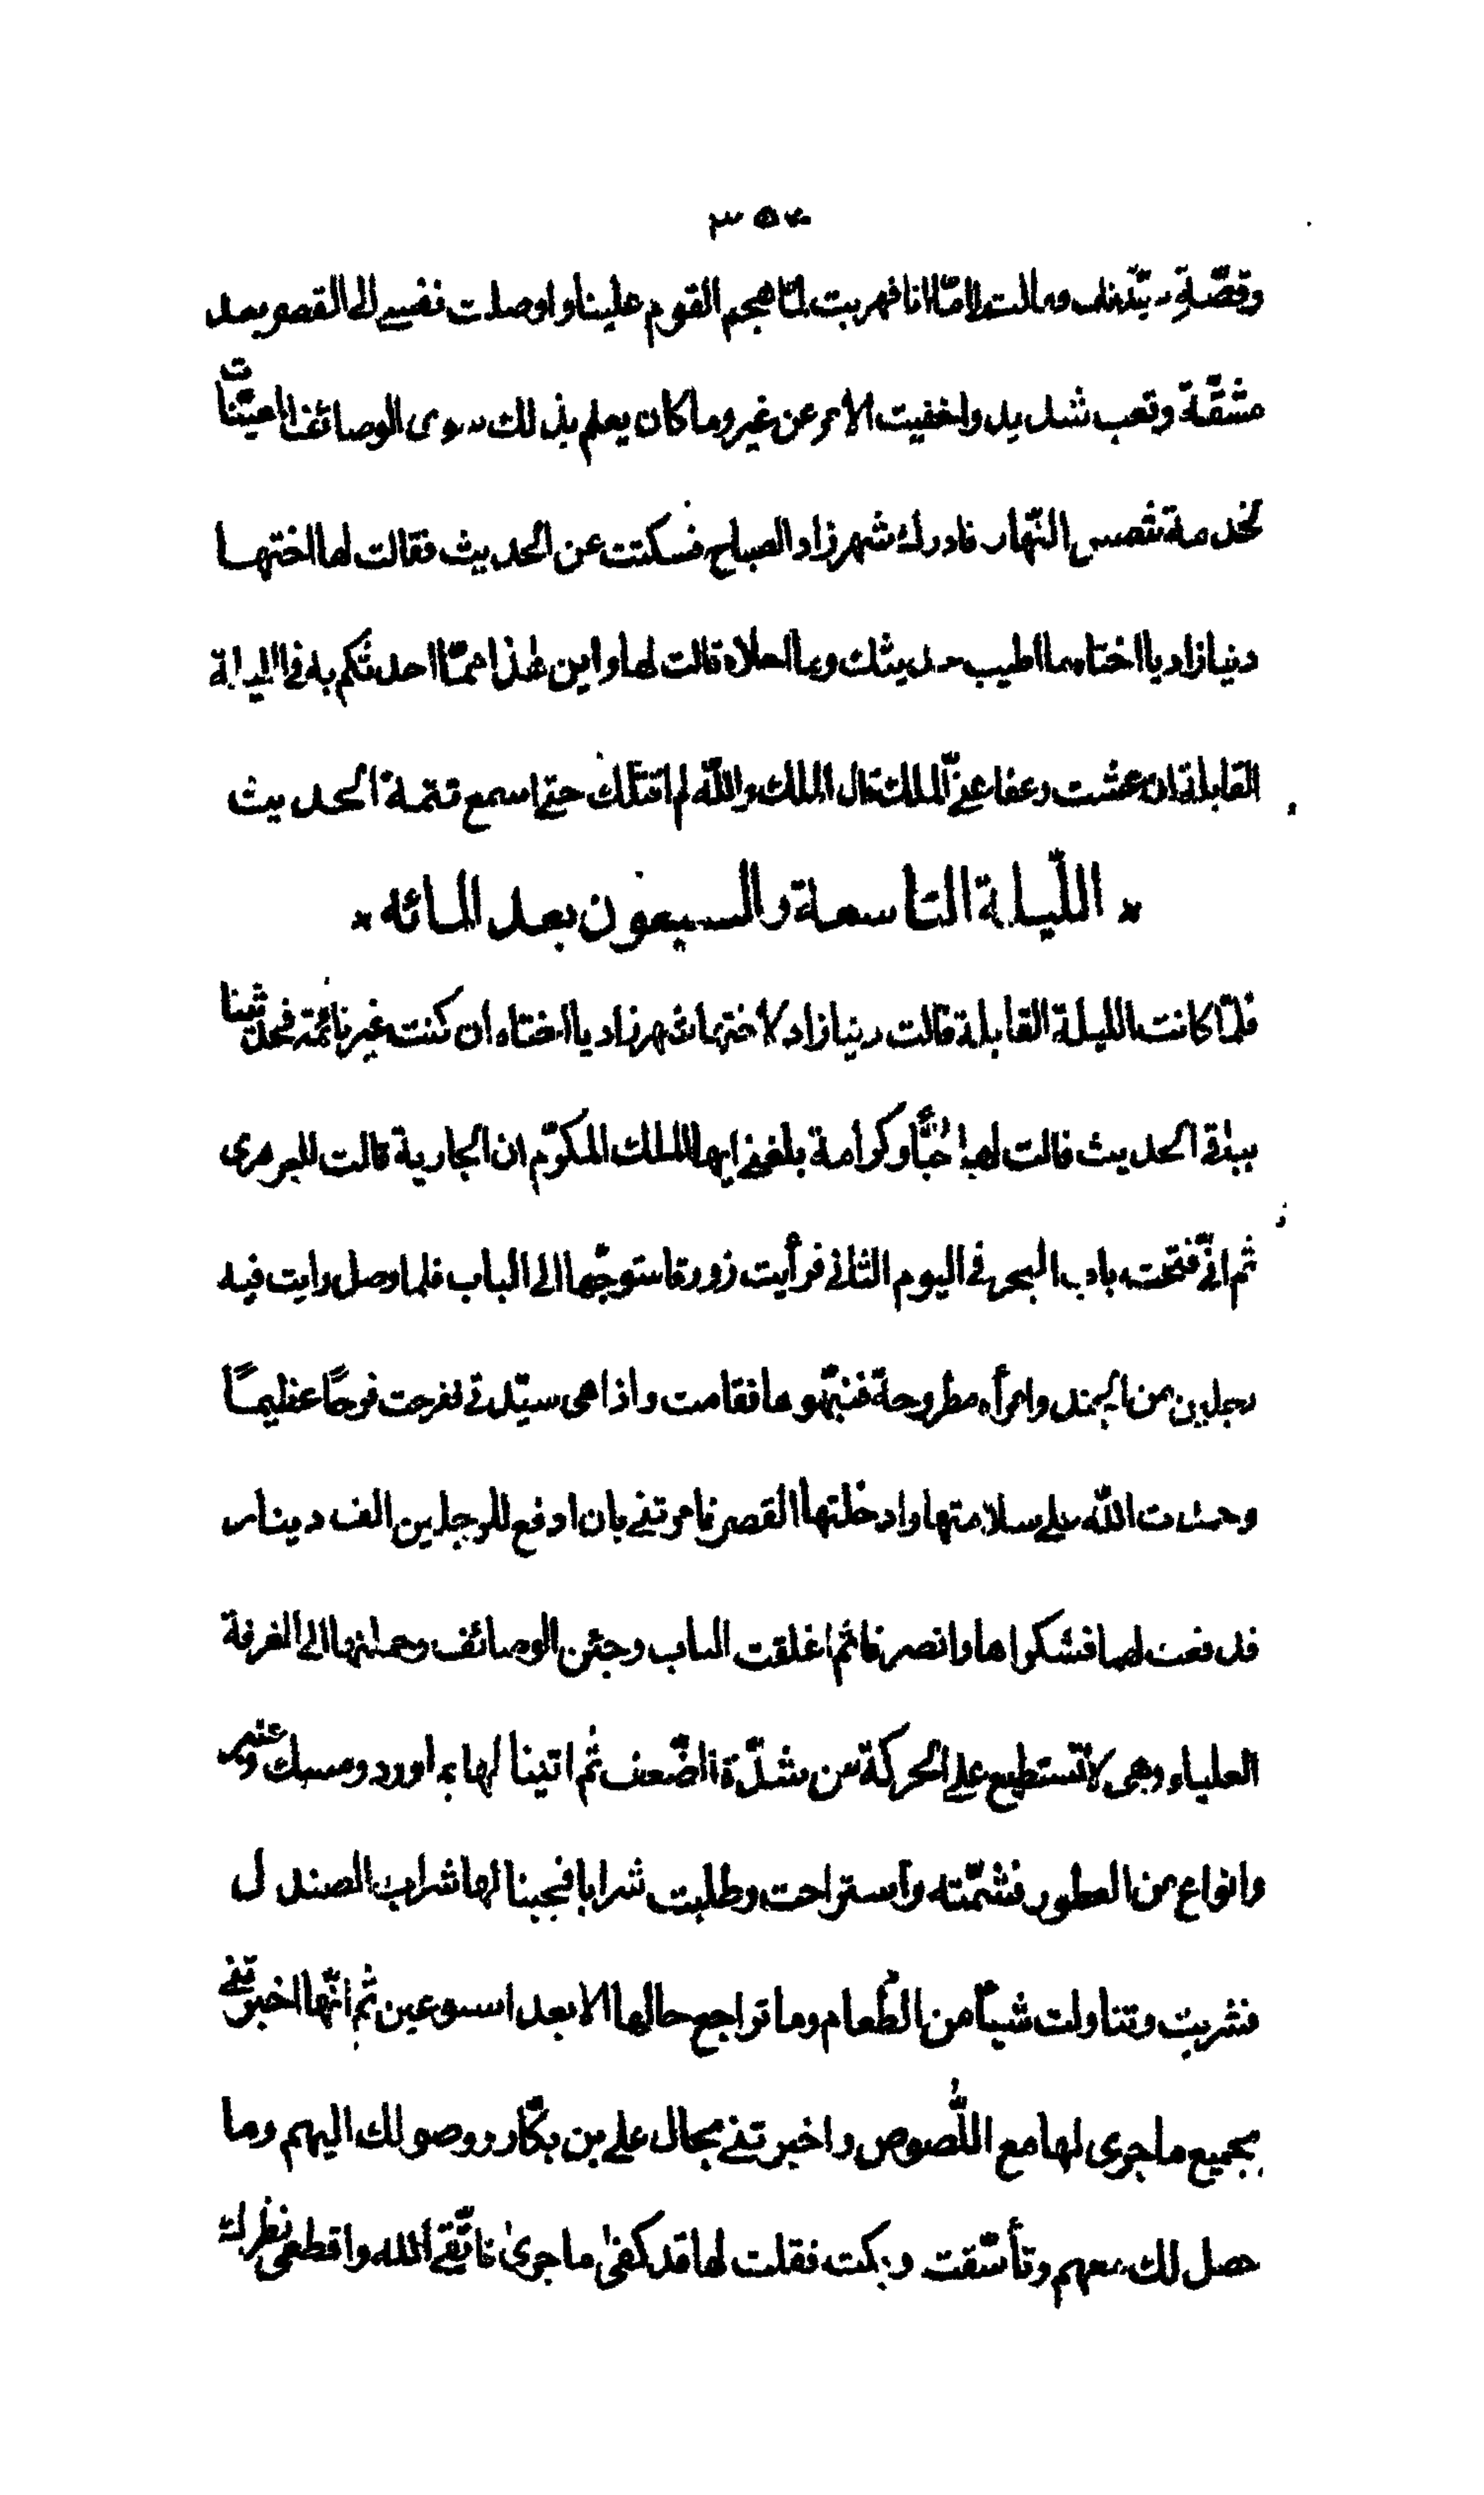 ٣٥٢
وقصّة سيّدتك ومالت لامّا انا فهربت لمّا هجم القوم علينا واوصلت نفسي الى القصر بعد
مشقّة وتعب شديد واخفيت الامر عن غير وما كان يعلم بذلك سوى الوصائف المعيّنات
لخدمة شمس النّهار فادرك شهرزاد الصباح فسكتت عن الحديث فقالت لها اختها
دنيازاد يا اختاه ما اطيب حديثك وما احلاه قالت لها واين هذا ممّا احدثكم به في الليلة
القابلة ان عشت وعفا عنّي الملك فقال الملك والله لم اقتلك حتى اسمع تتمة الحديث
* اللّيلة التاسعة والسبعون بعد المائه *
فلمّا كانت الليلة القابلة قالت دنيازاد لاختها شهرزاد يا اختاه ان كنت غير نائمة فحدثينا
ببقية الحديث قالت لها حبًّا وكرامة بلغني ايها الملك المكرّم ان الجارية قالت للجوهرى
ثم انّي فتحت باب البحر في اليوم الثاني فرأيت زورقا متوجّها الى الباب فلما وصل رايت فيه
رجلين من الجند وامرأه مطروحة فنبّهوها فقامت واذا هى سيّدتي ففرحت فرحًا عظيمًا
وحمدت الله على سلامتها وادخلتها القصر فامرتني بان ادفع للرجلين الف دينار
فدفعت لهما فشكراها وانصرفا ثم اغلقت الباب وجئن الوصائف وحملنها الى الغرفة
العلياء وهى لا تستطيع على الحركة من شدّة الضّعف ثم اتينا لها بماورد ومسك فشمّته
وانواع من العطور فشمّته واستراحت وطلبت شرابا فجينا لها شراب الصندل
فشربت وتناولت شيأ من الطّعام وما تراجع حالها الا بعد اسبوعين ثم انّها اخبرتني
بجميع ما جرى لها مع اللّصوص واخبرتني بحال علي بن بكّار ووصولك اليهم وما
حصل لك معهم وتأسّفت وبكت فقلت لها قد كفى ما جرى فاتّقي الله واقطعي نظرك